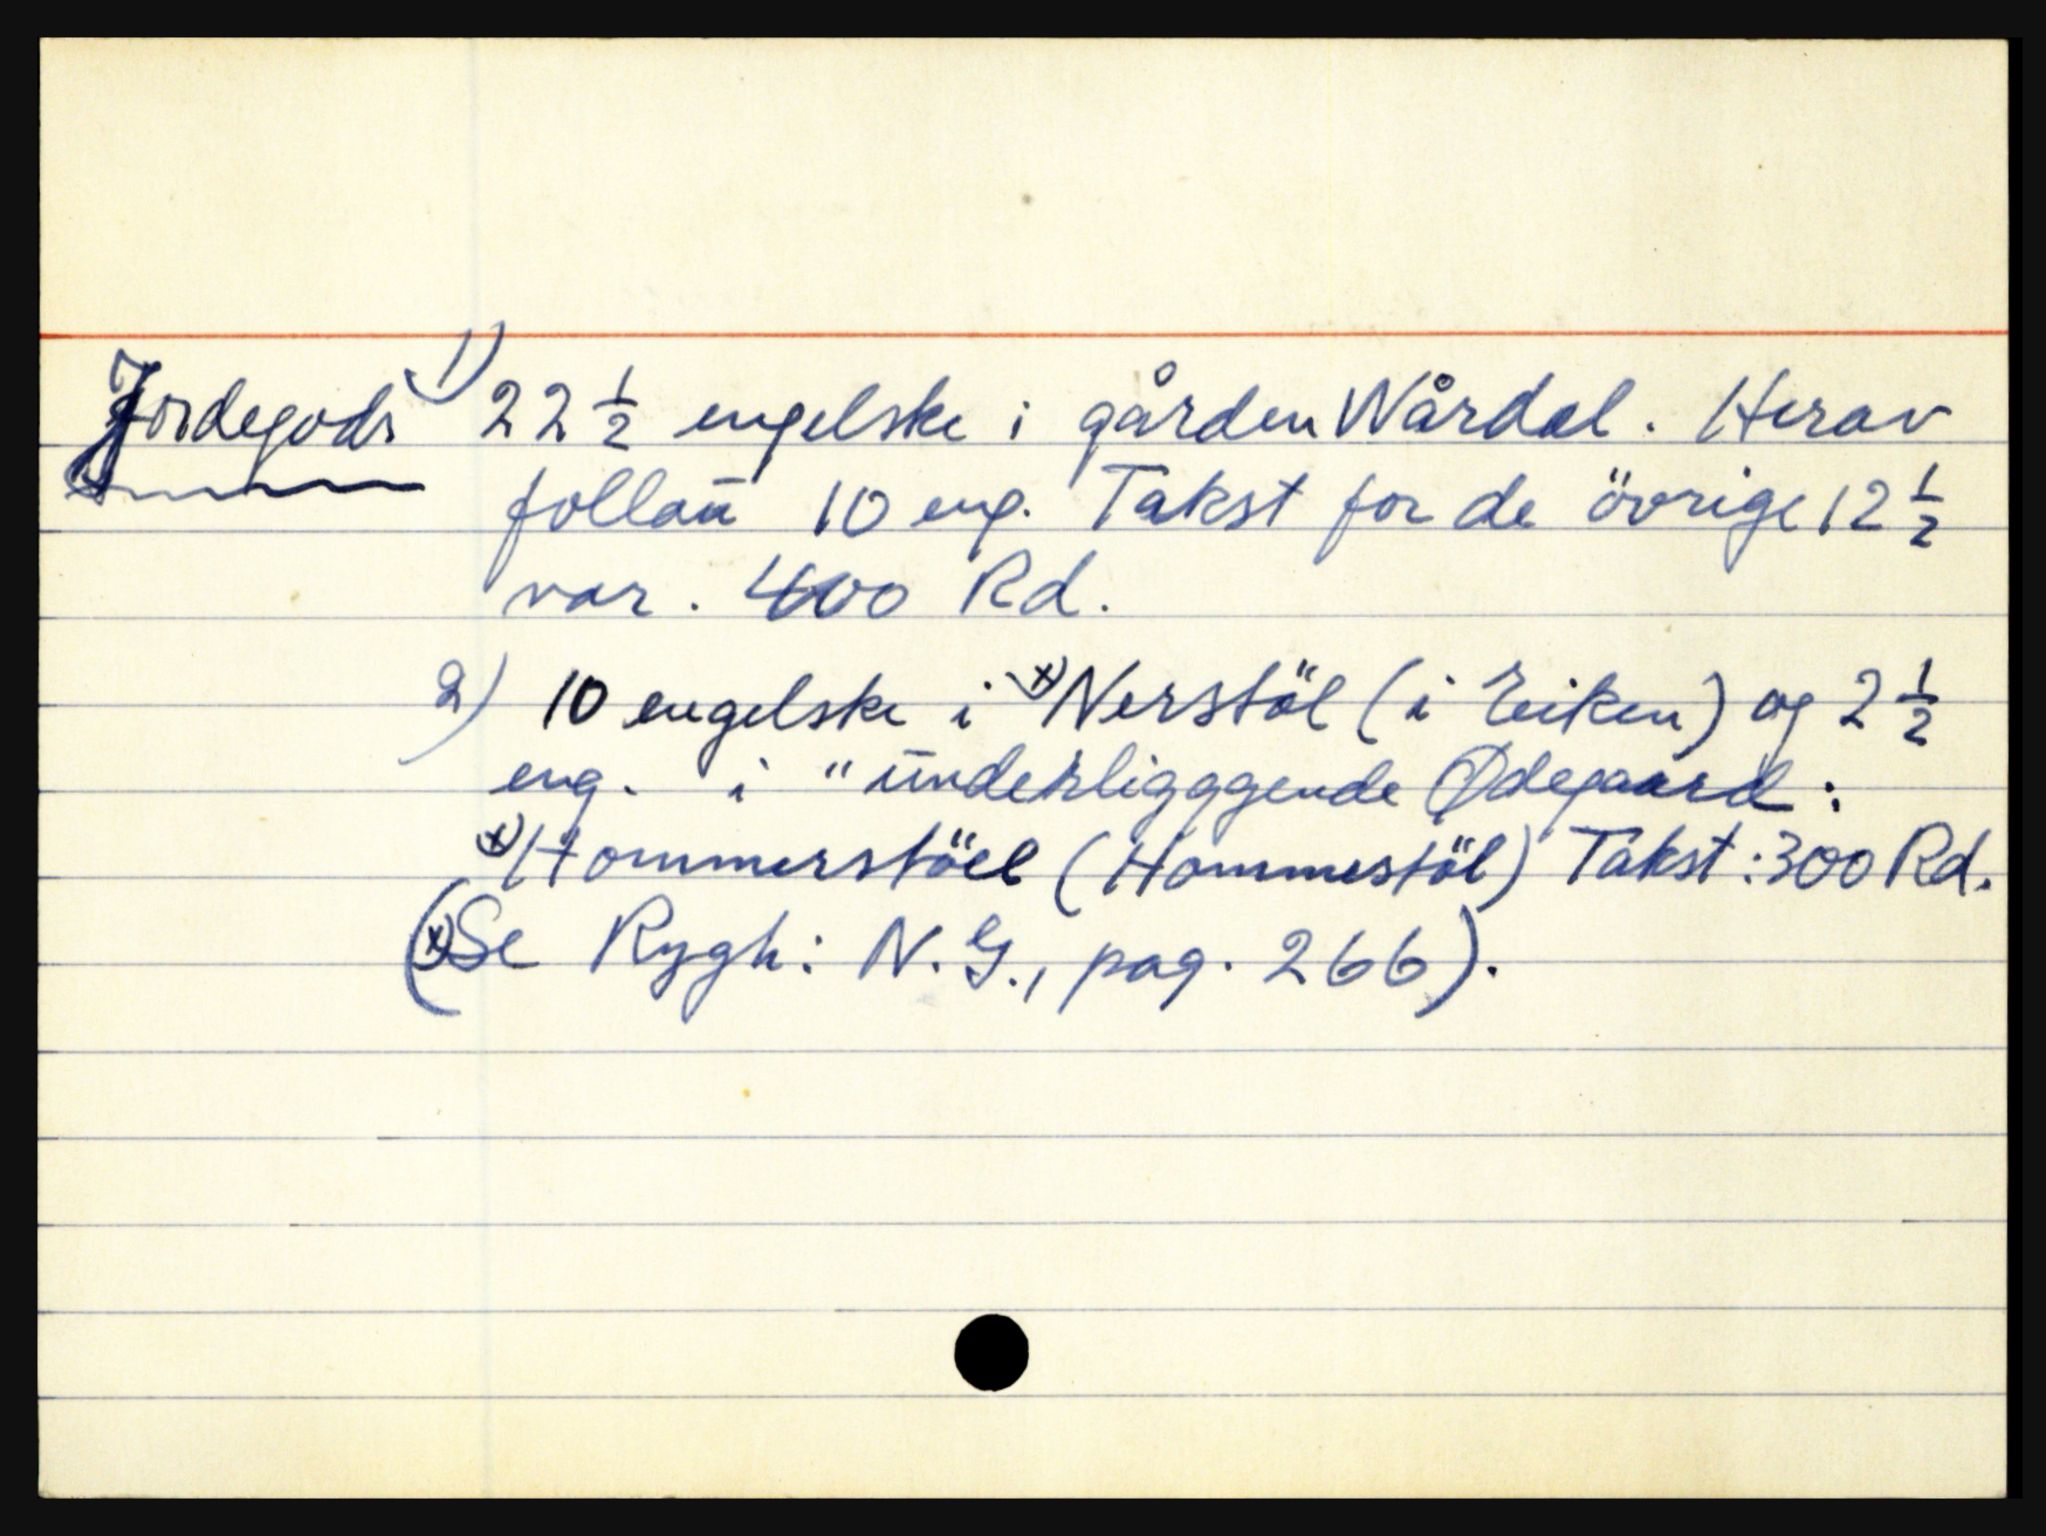 Jordegods 1) 22 1/2 engelske i gården Wårdal. Herav
follaū 10 eng. Takst for de övrige 12 1/2
var. 400 Rd.
2) 10 engelske i x) Nerstöl (i Eiken) og 2 1/2
eng. i "ūnderligggende Ødegaard:
x) Hommerstöel (Hommestöl) Takst: 300 Rd.
(x) Se Rygh: N. G., pag. 266).